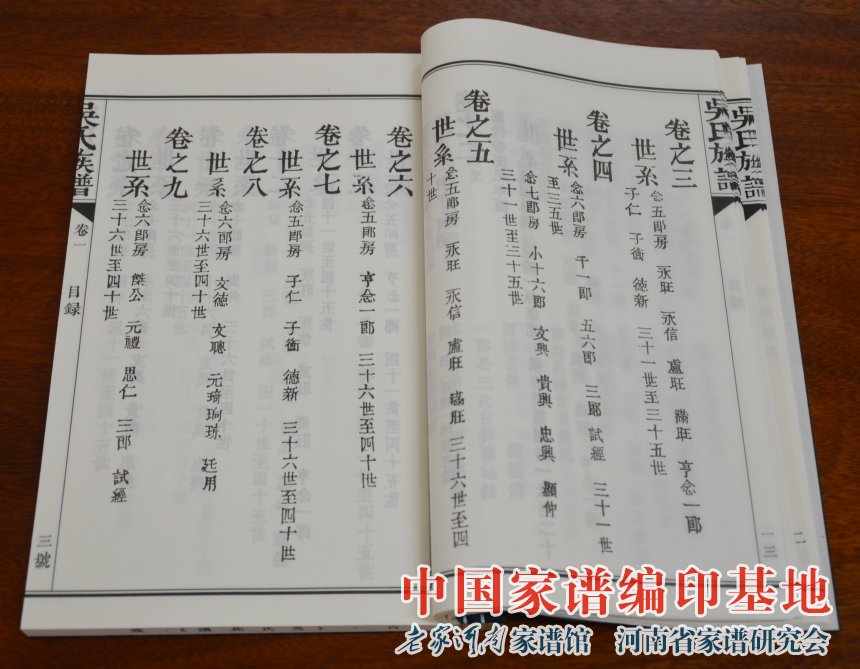 吳氏族譜
吳氏族譜
卷之三
世系 念五郎房 永旺 永信 盧旺 滿旺 亨念一郎
子仁 子衡 德新 三十一世至三十五世
卷之四
世系 念六郎房 千一郎 五六郎 三郎 試經 三十一世
至三五世
念七郎房 小十六郎 文興 貴興 忠興 顯仲
三十一世至三十五世
卷之五
世系 念五郎房 永旺 永信 盧旺 滿旺 三十六世至四
十世
卷之六
世系 念五郎房 亨念一郎 三十六世至四十世
卷之七
世系 念五郎房 子仁 子衡 德新 三十六世至四十世
卷之八
世系 念六郎房 文德 文聰 元琦珦琼 廷用
三十六世至四十世
卷之九
世系 念六郎房 傑公 元禮 思仁 三郎 試經
三十六世至四十世
吳氏族譜 卷一 目録 三號
中国家谱编印基地
老家河南家谱馆 河南省家谱研究会